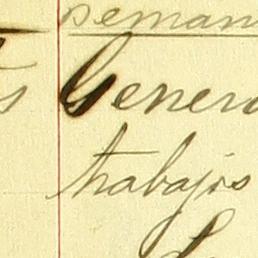 Deman
s Genera
trabajos